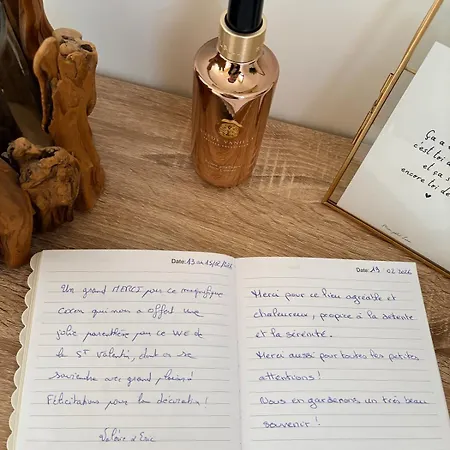 Ça a
c'est toi
et ça s
encore toi de
♥
Date: 13 au 15/02/2026
Un grand MERCI pour ce magnifique
cocon qui nous a offert une
jolie parenthèse pour ce WE de
la ST Valentin, dont on se
souviendra avec grand plaisir !
Félicitations pour la décoration !
Valérie & Eric
Date: 19 02 2026
Merci pour ce lieu agréable et
chaleureux, propice à la détente
et la sérénité.
Merci aussi pour toutes les petites
attentions !
Nous en garderons un très beau
souvenir !